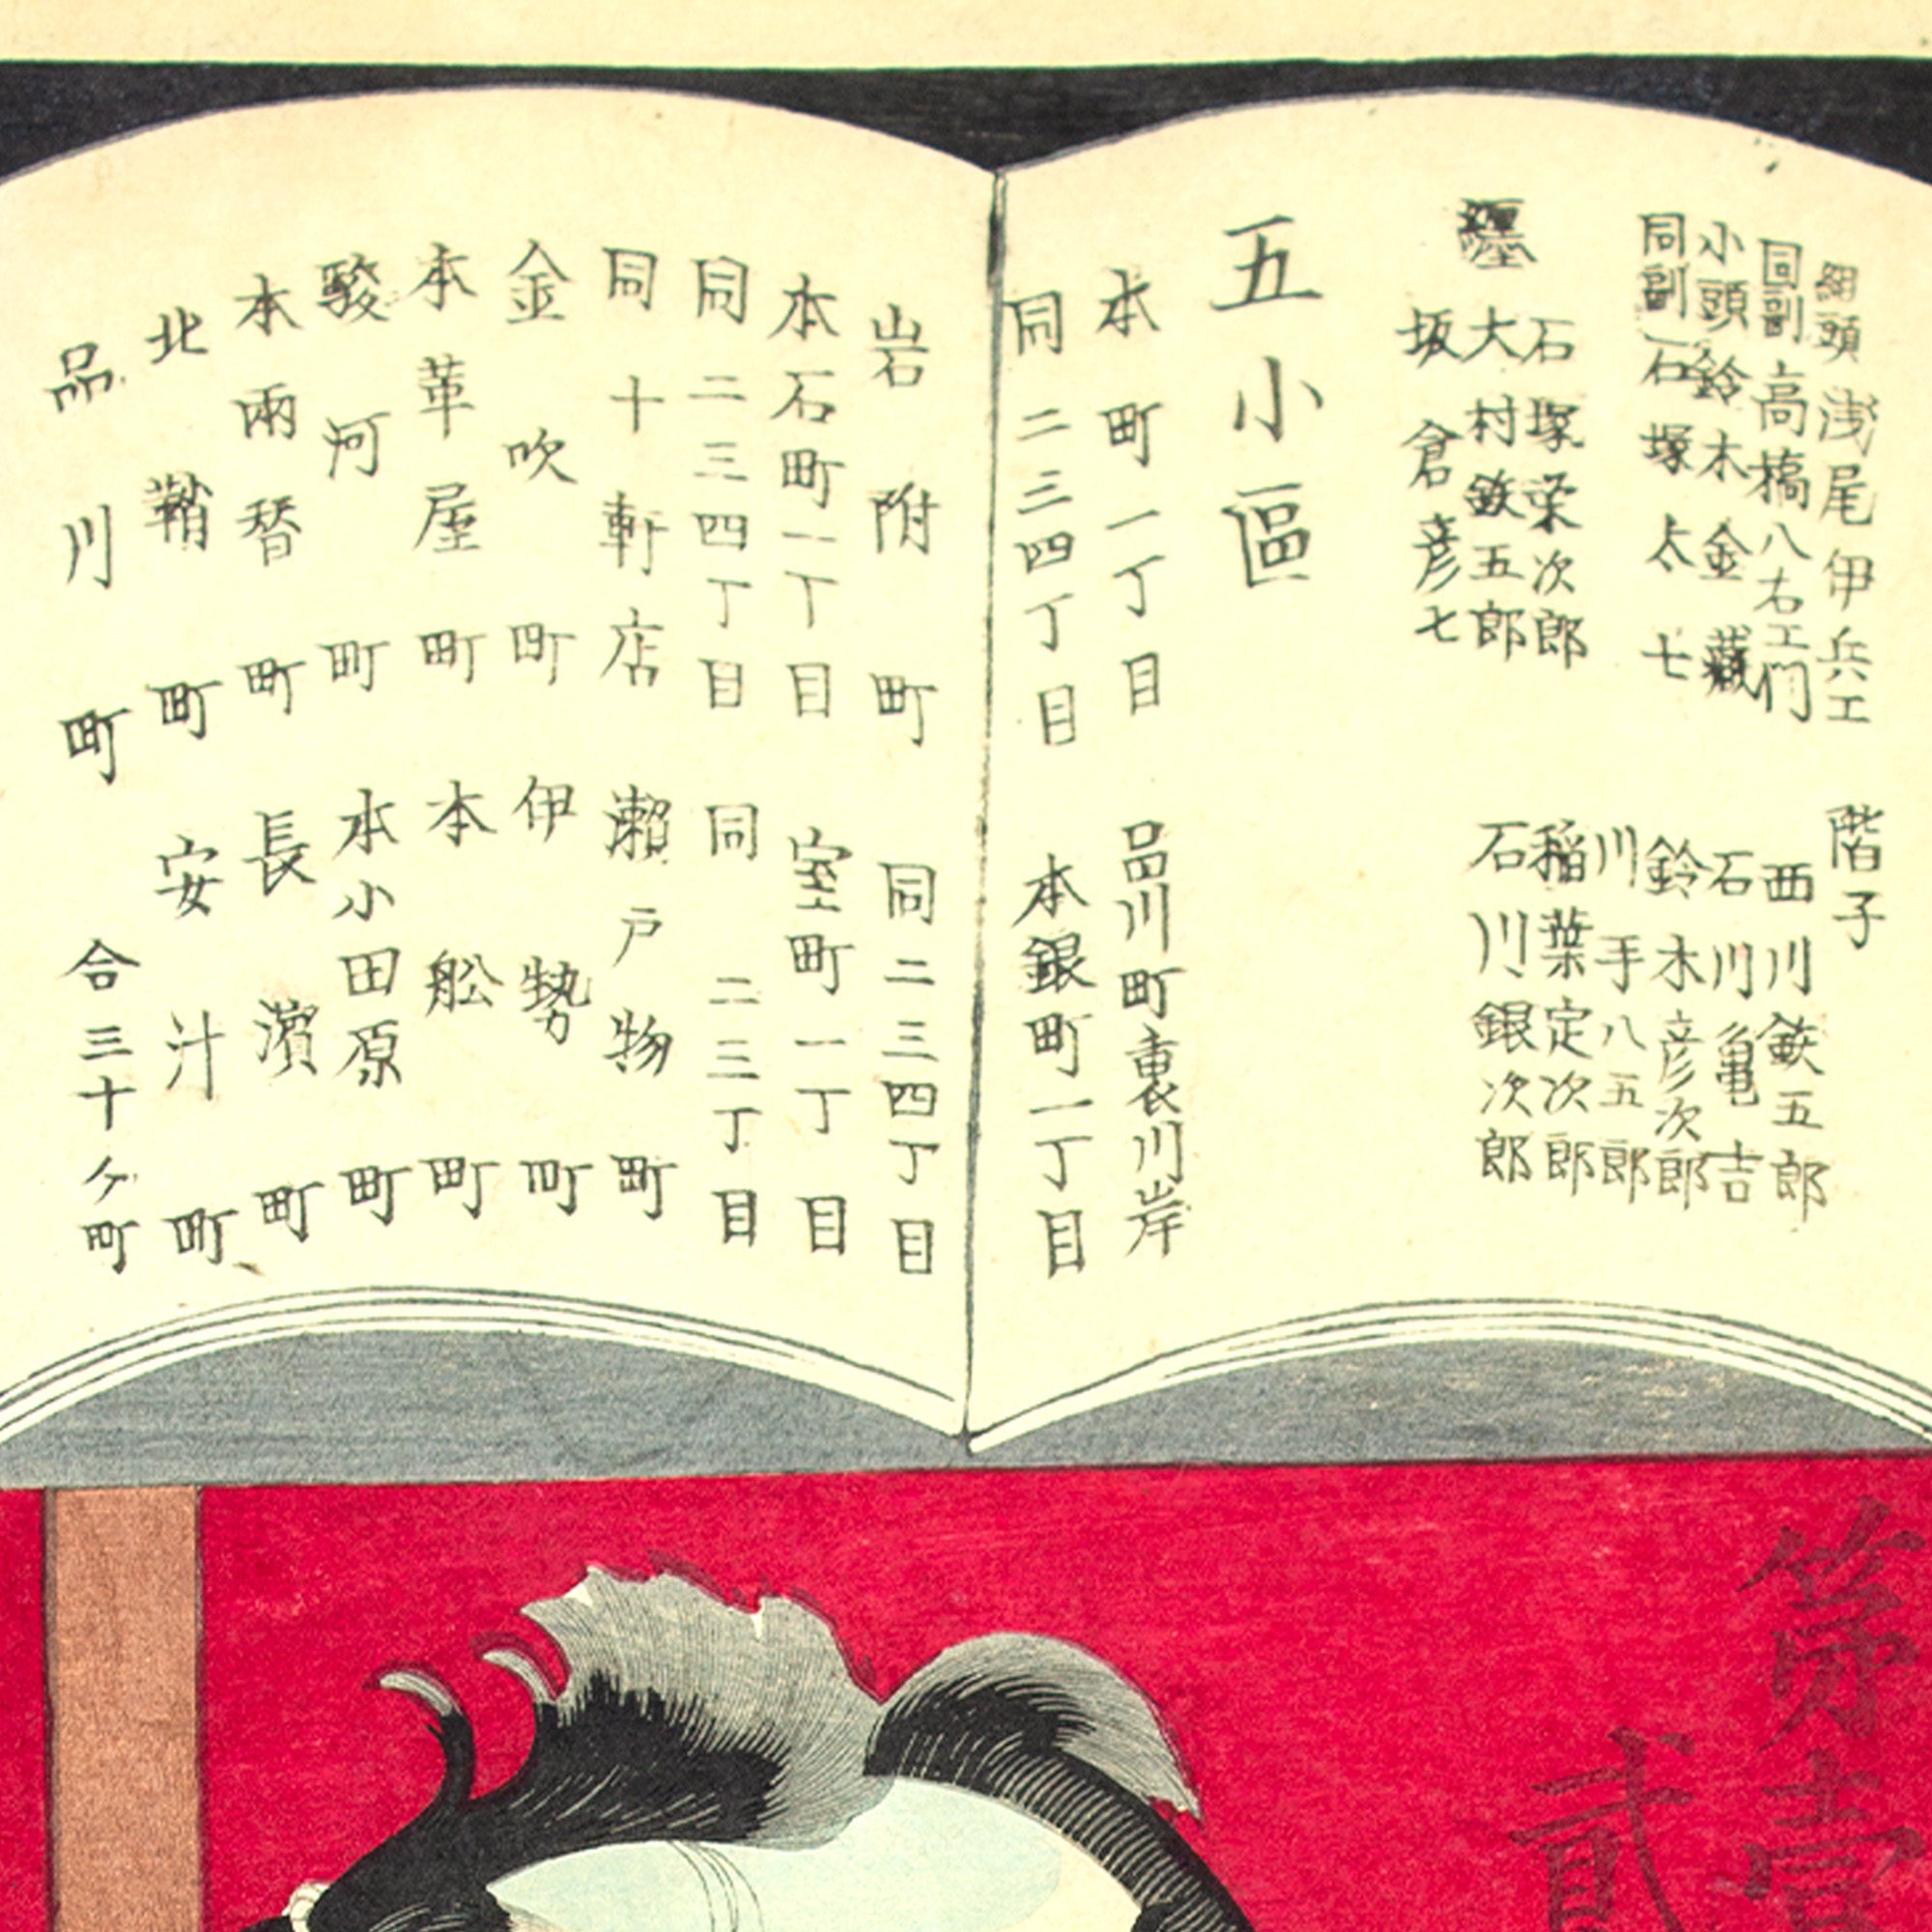 組頭 浅尾伊兵エ
同副 高橋八右エ門
小頭 鈴木金藏
同副 石塚太七
纒
石塚栄次郎
大村鉃五郎
坂倉彦七
階子
西川鉃五郎
石川亀吉
鈴木彦次郎
川手八五郎
稲葉定次郎
石川銀次郎
五小區
本町一丁目 品川町裏川岸
同二三四丁目 本銀町一丁目
岩附町 同二三四丁目
本石町一丁目 室町一丁目
同二三四丁目 同二三丁目
同十軒店 瀬戸物町
金吹町 伊勢町
本革屋町 本舩町
駿河町 本小田原町
本兩替町 長濱町
北鞘町 安汁町
品川町 合三十ケ町
第壹
貳